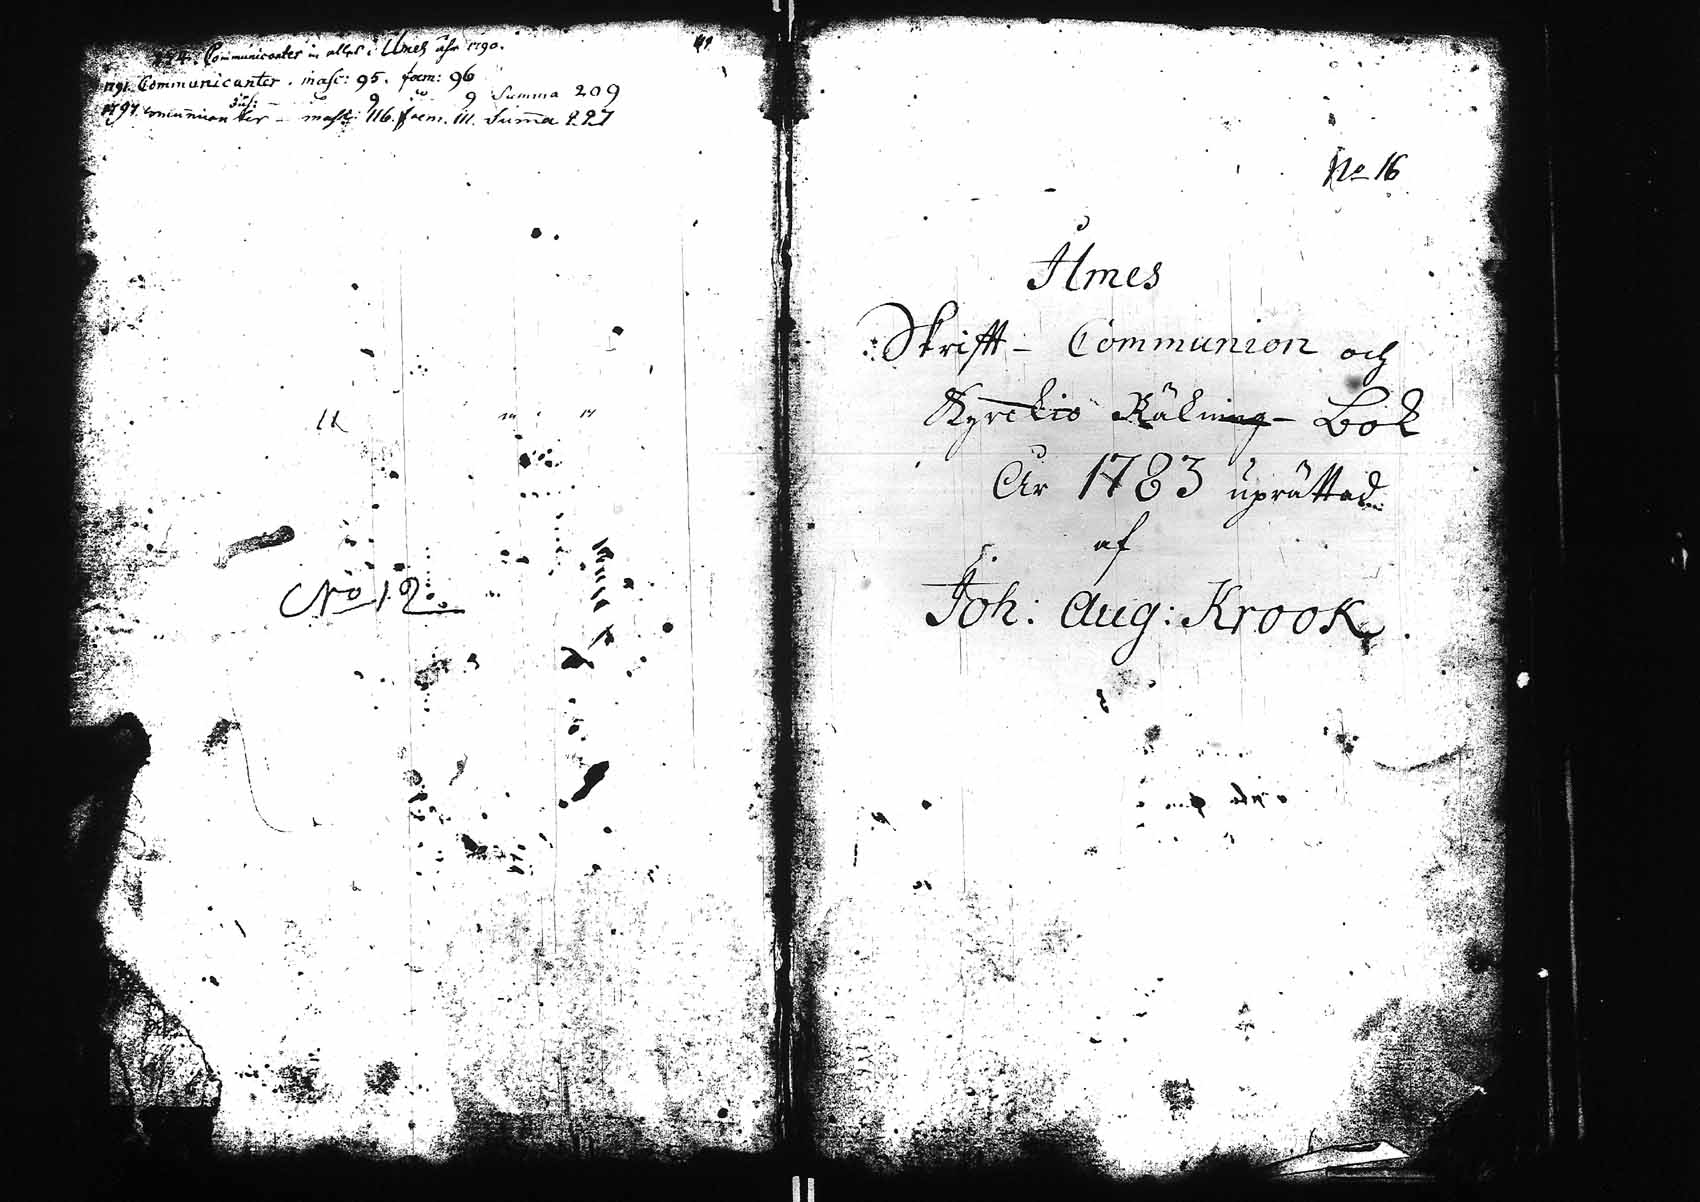 174. Communicanter in alles i Umes åhr 1790.
1791. Communicanter. masc: 95. foem: 96
9 9 Summa 209
1797. Communicanter - masc: 116. foem. 111. Summa 227
No 12.
No 16
Åmes
Skrifft - Communion och
Kyrckio Räkning - Bok
År 1783 uprättad
af
Joh: Aug: Krook.